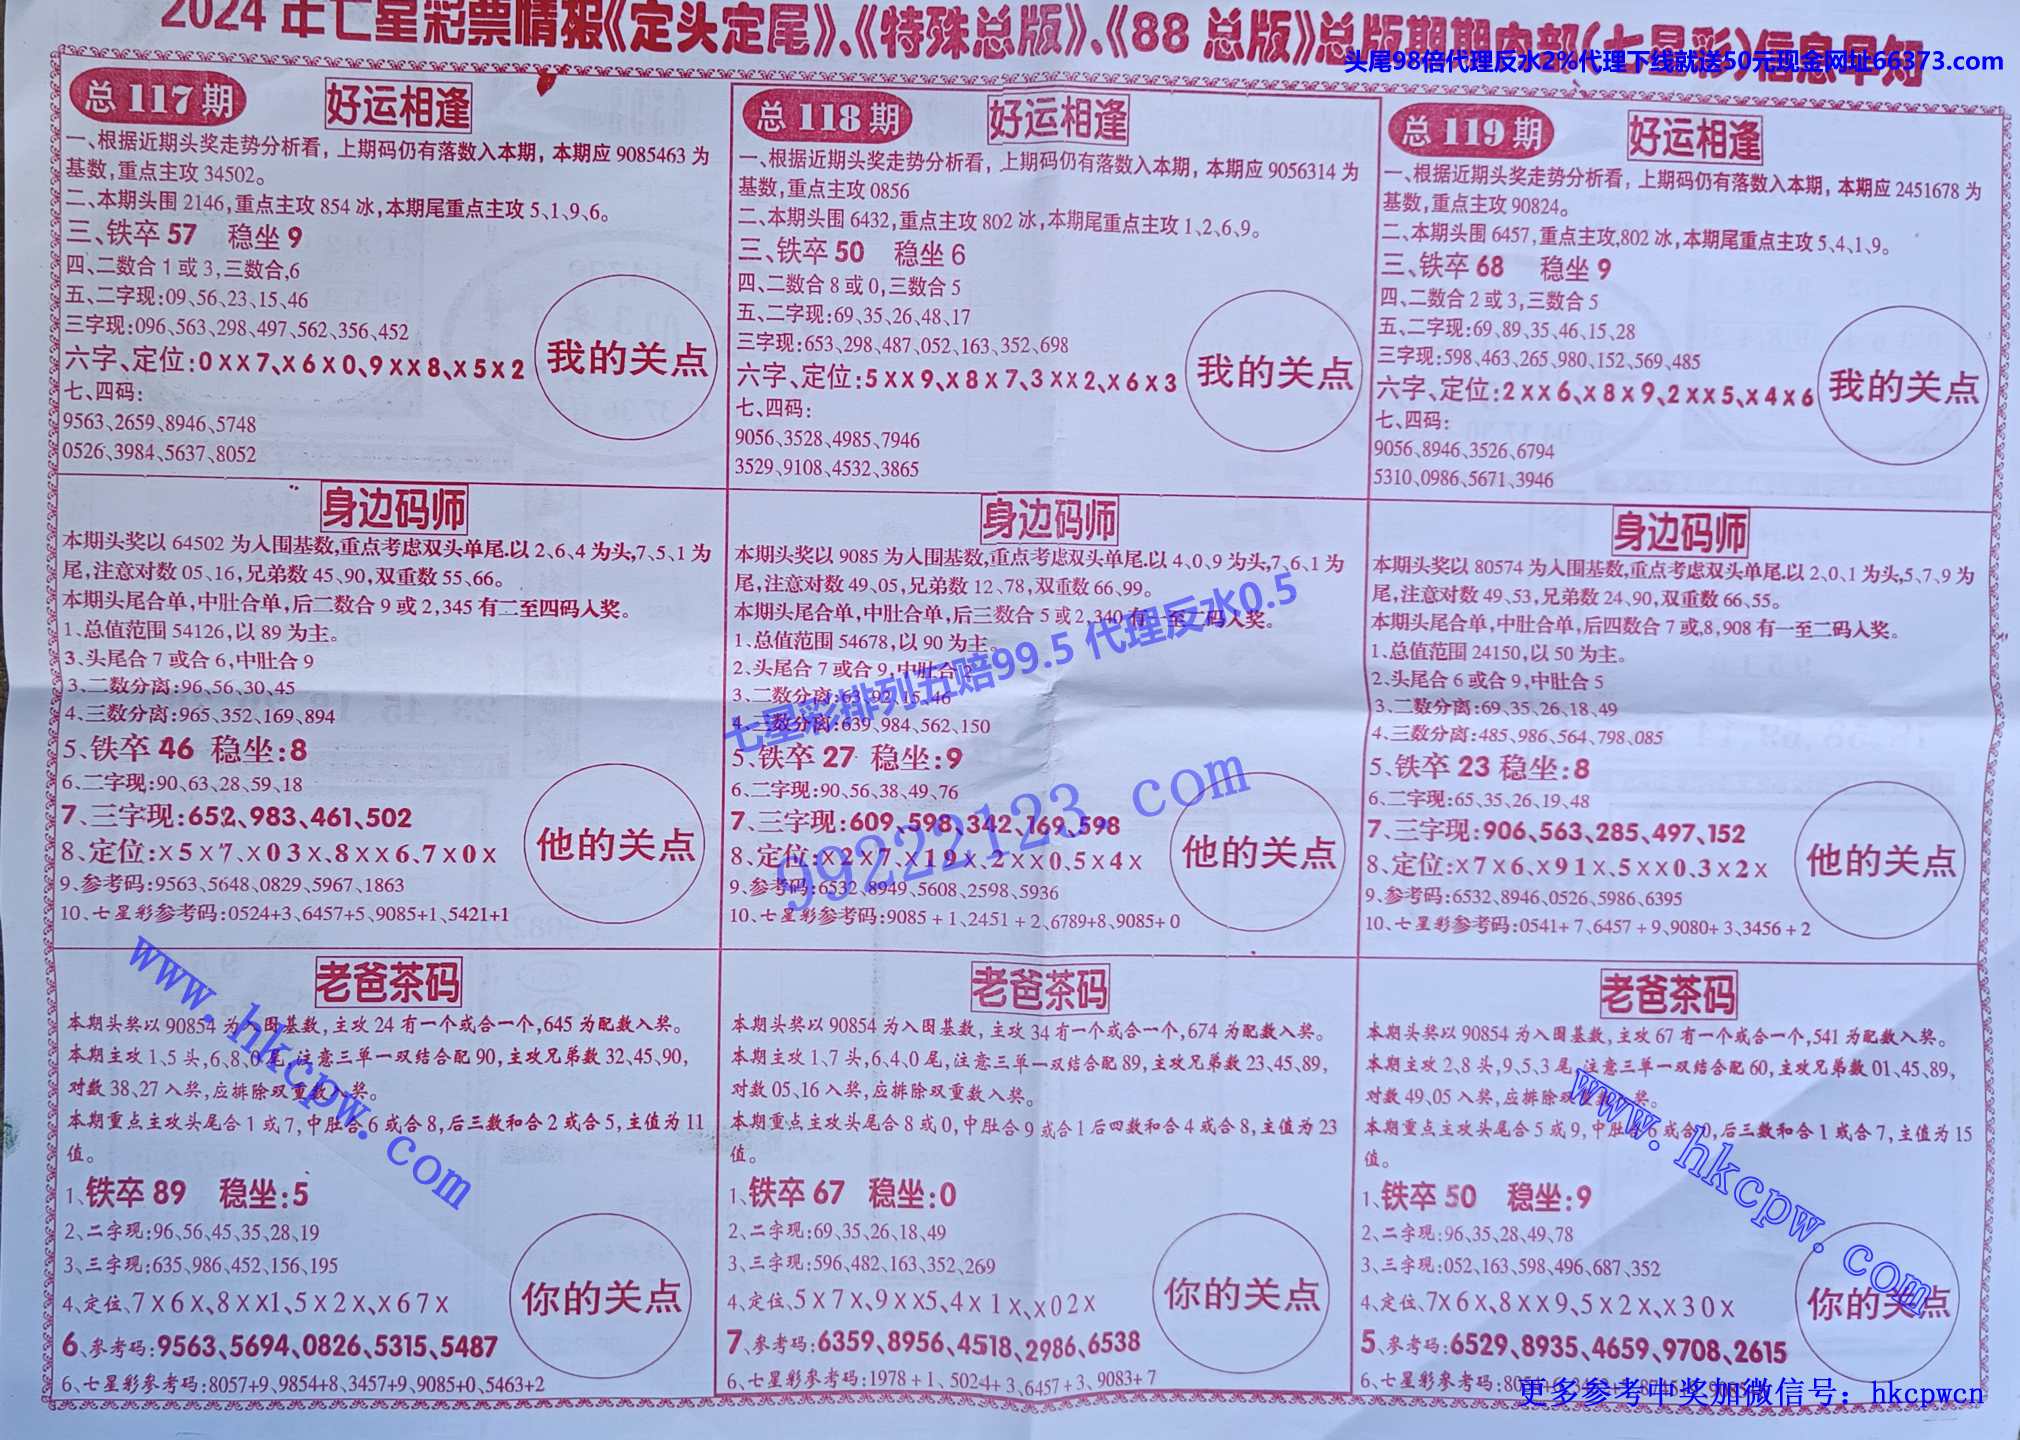 2024年七星彩票情报《定头定尾》、《特殊总版》、《88 总版》总版期期内部(七星彩)信息早知
头尾98倍代理反水2%代理下线就送50元现金网址66373.com
总 117 期
好运相逢
一、根据近期头奖走势分析看，上期码仍有落数入本期，本期应 9085463 为
基数,重点主攻 34502。
二、本期头围 2146,重点主攻 854 冰,本期尾重点主攻 5、1、9、6。
三、铁卒 57 稳坐 9
四、二数合 1 或 3,三数合,6
五、二字现:09、56、23、15、46
三字现:096、563、298、497、562、356、452
六字、定位:0××7、×6×0、9××8、×5×2
七、四码:
9563、2659、8946、5748
0526、3984、5637、8052
我的关点
总 118 期
好运相逢
一、根据近期头奖走势分析看，上期码仍有落数入本期，本期应 9056314 为
基数,重点主攻 0856
二、本期头围 6432,重点主攻 802 冰,本期尾重点主攻 1、2、6、9。
三、铁卒 50 稳坐 6
四、二数合 8 或 0,三数合 5
五、二字现:69、35、26、48、17
三字现:653、298、487、052、163、352、698
六字、定位:5××9、×8×7、3××2、×6×3
七、四码:
9056、3528、4985、7946
3529、9108、4532、3865
我的关点
总 119 期
好运相逢
一、根据近期头奖走势分析看，上期码仍有落数入本期，本期应 2451678 为
基数,重点主攻 90824。
二、本期头围 6457,重点主攻,802 冰,本期尾重点主攻 5、4、1、9。
三、铁卒 68 稳坐 9
四、二数合 2 或 3,三数合 5
五、二字现:69、89、35、46、15、28
三字现:598、463、265、980、152、569、485
六字、定位:2××6、×8×9、2××5、×4×6
七、四码:
9056、8946、3526、6794
5310、0986、5671、3946
我的关点
身边码师
本期头奖以 64502 为入围基数,重点考虑双头单尾.以 2、6、4 为头,7、5、1 为
尾,注意对数 05、16,兄弟数 45、90,双重数 55、66。
本期头尾合单,中肚合单,后二数合 9 或 2,345 有二至四码入奖。
1、总值范围 54126,以 89 为主。
3、头尾合 7 或合 6,中肚合 9
3、二数分离:96、56、30、45
4、三数分离:965、352、169、894
5、铁卒 46 稳坐:8
6、二字现:90、63、28、59、18
7、三字现:652、983、461、502
8、定位:×5×7、×03×、8××6、7×0×
9、参考码:9563、5648、0829、5967、1863
10、七星彩参考码:0524+3、6457+5、9085+1、5421+1
他的关点
身边码师
本期头奖以 9085 为入围基数,重点考虑双头单尾.以 4、0、9 为头,7、6、1 为
尾,注意对数 49、05,兄弟数 12、78,双重数 66、99。
本期头尾合单,中肚合单,后三数合 5 或 2,340 有一至二码入奖。
1、总值范围 54678,以 90 为主。
2、头尾合 7 或合 9,中肚合 2
3、二数分离:63、92、15、46
4、三数分离:639、984、562、150
5、铁卒 27 稳坐:9
6、二字现:90、56、38、49、76
7、三字现:609、598、342、169、598
8、定位:×2×7、×19×、2××0、5×4×
9、参考码:6532、8949、5608、2598、5936
10、七星彩参考码:9085 + 1、2451 + 2、6789+8、9085+ 0
他的关点
身边码师
本期头奖以 80574 为入围基数,重点考虑双头单尾.以 2、0、1 为头,5、7、9 为
尾,注意对数 49、53,兄弟数 24、90,双重数 66、55。
本期头尾合单,中肚合单,后四数合 7 或,8,908 有一至二码入奖。
1、总值范围 24150,以 50 为主。
2、头尾合 6 或合 9,中肚合 5
3、二数分离:69、35、26、18、49
4、三数分离:485、986、564、798、085
5、铁卒 23 稳坐:8
6、二字现:65、35、26、19、48
7、三字现:906、563、285、497、152
8、定位:×7×6、×91×、5××0、3×2×
9、参考码:6532、8946、0526、5986、6395
10、七星彩参考码:0541+ 7、6457 + 9、9080+ 3、3456 + 2
他的关点
七星彩排列五赔99.5 代理反水0.5
99222123. com
老爸茶码
本期头奖以 90854 为入围基数,主攻 24 有一个或合一个,645 为配数入奖。
本期主攻 1、5 头,6、8、0 尾,注意三单一双结合配 90,主攻兄弟数 32、45、90,
对数 38、27 入奖,应排除双重数入奖。
本期重点主攻头尾合 1 或 7,中肚合 6 或合 8,后三数和合 2 或合 5,主值为 11
值。
1、铁卒 89 稳坐:5
2、二字现:96、56、45、35、28、19
3、三字现:635、986、452、156、195
4、定位、7×6×、8××1、5×2×、×67×
6、参考码:9563、5694、0826、5315、5487
6、七星彩参考码:8057+9、9854+8、3457+9、9085+0、5463+2
你的关点
老爸茶码
本期头奖以 90854 为入围基数,主攻 34 有一个或合一个,674 为配数入奖。
本期主攻 1、7 头,6、4、0 尾,注意三单一双结合配 89,主攻兄弟数 23、45、89,
对数 05、16 入奖,应排除双重数入奖。
本期重点主攻头尾合 8 或 0,中肚合 9 或合 1 后四数和合 4 或合 8,主值为 23
值。
1、铁卒 67 稳坐:0
2、二字现:69、35、26、18、49
3、三字现:596、482、163、352、269
4、定位、5×7×、9××5、4×1×、×02×
7、参考码:6359、8956、4518、2986、6538
6、七星彩参考码:1978 + 1、5024+ 3、6457 + 3、9083+ 7
你的关点
老爸茶码
本期头奖以 90854 为入围基数,主攻 67 有一个或合一个,541 为配数入奖。
本期主攻 2、8 头,9、5、3 尾,注意三单一双结合配 60,主攻兄弟数 01、45、89,
对数 49、05 入奖,应排除双重数入奖。
本期重点主攻头尾合 5 或 9,中肚合 6 或合 0,后三数和合 1 或合 7,主值为 15
值。
1、铁卒 50 稳坐:9
2、二字现:96、35、28、49、78
3、三字现:052、163、598、496、687、352
4、定位、7×6×、8××9、5×2×、×30×
5、参考码:6529、8935、4659、9708、2615
6、七星彩参考码:
你的关点
www. hkcpw. com
www. hkcpw. com
更多参考中奖加微信号: hkcpwcn